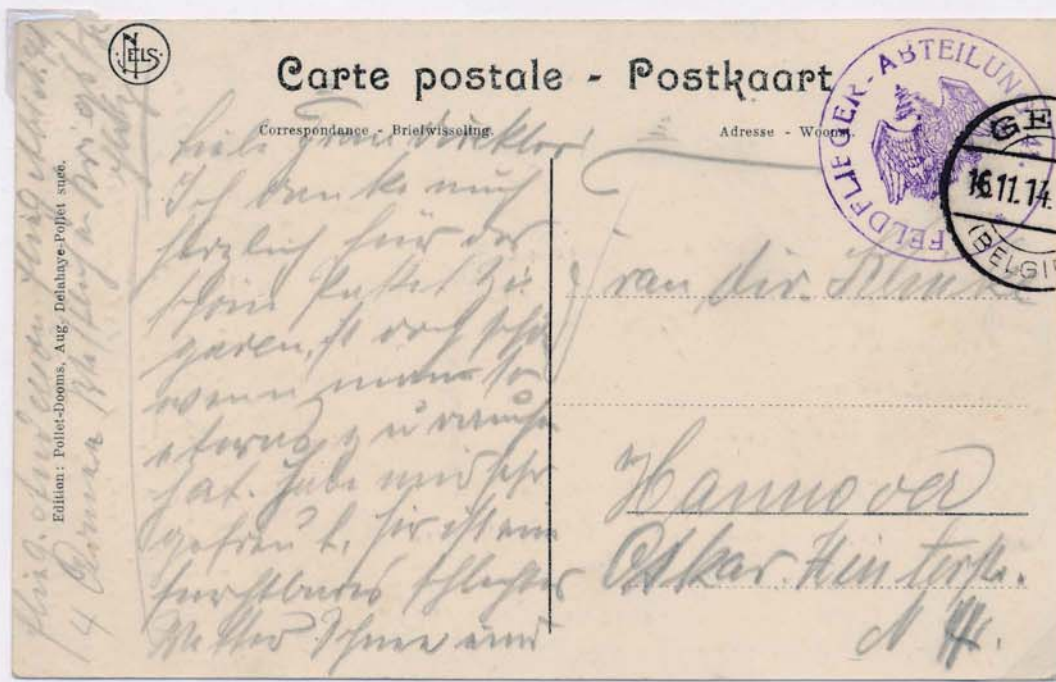 NELS
Carte postale - Postkaart
Correspondance - Briefwisseling.
Adresse - Woonst.
FELDFLIEGER-ABTEILUN
GE
16.11.14.
(BELGIE
Edition: Pollet-Dooms, Aug. Delahaye-Pollet succ.
4 Armee
Liebe Frau Direktor
Ich danke auch
herzlich für das
schöne Paket Zi-
garren, ist doch schön
wenn man so
etwas zu rauchen
hat. Habe mich sehr
gefreut. hier ist ein
furchtbares schlechtes
Wetter Schnee und
Frau Dir.
Hannover
Oskar Winterstr.
N